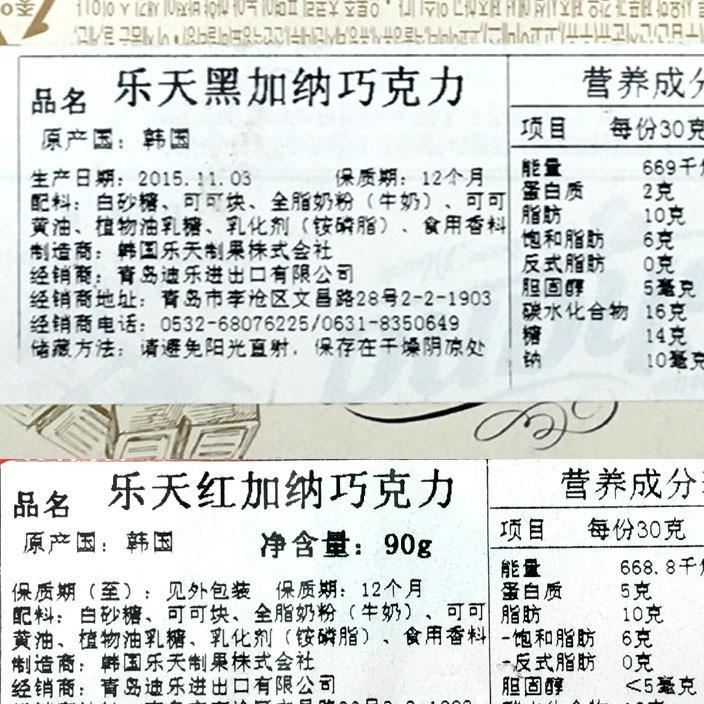 品名 乐天黑加纳巧克力
原产国：韩国
生产日期：2015.11.03 保质期：12个月
配料：白砂糖、可可块、全脂奶粉（牛奶）、可可
黄油、植物油乳糖、乳化剂（铵磷脂）、食用香料
制造商：韩国乐天制果株式会社
经销商：青岛迪乐进出口有限公司
经销商地址：青岛市李沧区文昌路28号2-2-1903
经销商电话：0532-68076225/0631-8350649
储藏方法：请避免阳光直射，保存在干燥阴凉处
营养成分
项目 每份30克
能量 669千焦
蛋白质 2克
脂肪 10克
饱和脂肪 6克
反式脂肪 0克
胆固醇 5毫克
碳水化合物 16克
糖 14克
钠 10毫克
品名 乐天红加纳巧克力
原产国：韩国 净含量：90g
保质期（至）：见外包装 保质期：12个月
配料：白砂糖、可可块、全脂奶粉（牛奶）、可可
黄油、植物油乳糖、乳化剂（铵磷脂）、食用香料
制造商：韩国乐天制果株式会社
经销商：青岛迪乐进出口有限公司
营养成分
项目 每份30克
能量 668.8千焦
蛋白质 5克
脂肪 10克
-饱和脂肪 6克
-反式脂肪 0克
胆固醇 <5毫克